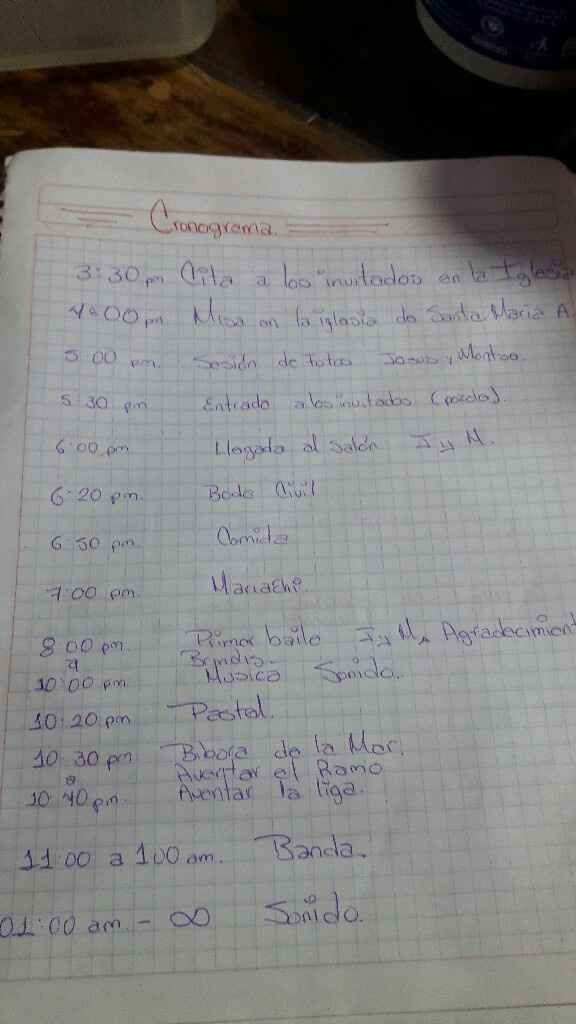 Cronograma
3:30 pm Cita a los invitados en la Iglesia
4:00 pm Misa en la iglesia de Santa Maria A.
5 00 pm. Sesión de fotos Josue y Montse.
5 30 pm Entrada a los invitados
6:00 pm Llegada al Salón J y M.
6:20 pm. Boda Civil
6:50 pm. Comida
7:00 pm. Mariachi.
8 00 pm. Primer baile J y M, Agradecimient
a Brindis.
10:00 pm Musica Sonido.
10:20 pm Pastel.
10:30 pm Bibora de la Mar.
a Aventar el Ramo
10:40 pm. Aventar la liga.
11:00 a 1:00 am. Banda.
01:00 am. - ∞ Sonido.